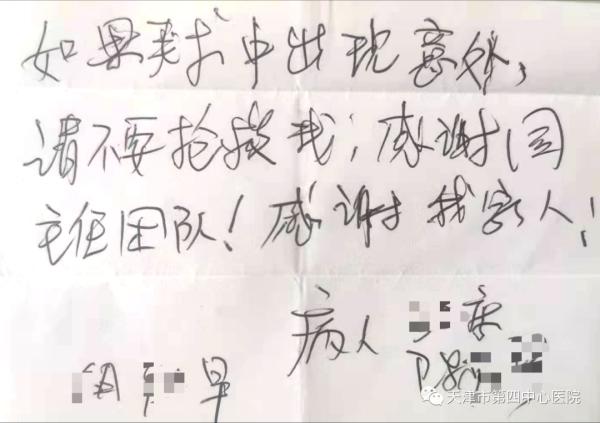 如果手术中出现意外，
请不要抢救我；感谢
主任团队！感谢我家人！
病人
早
天津市第四中心医院